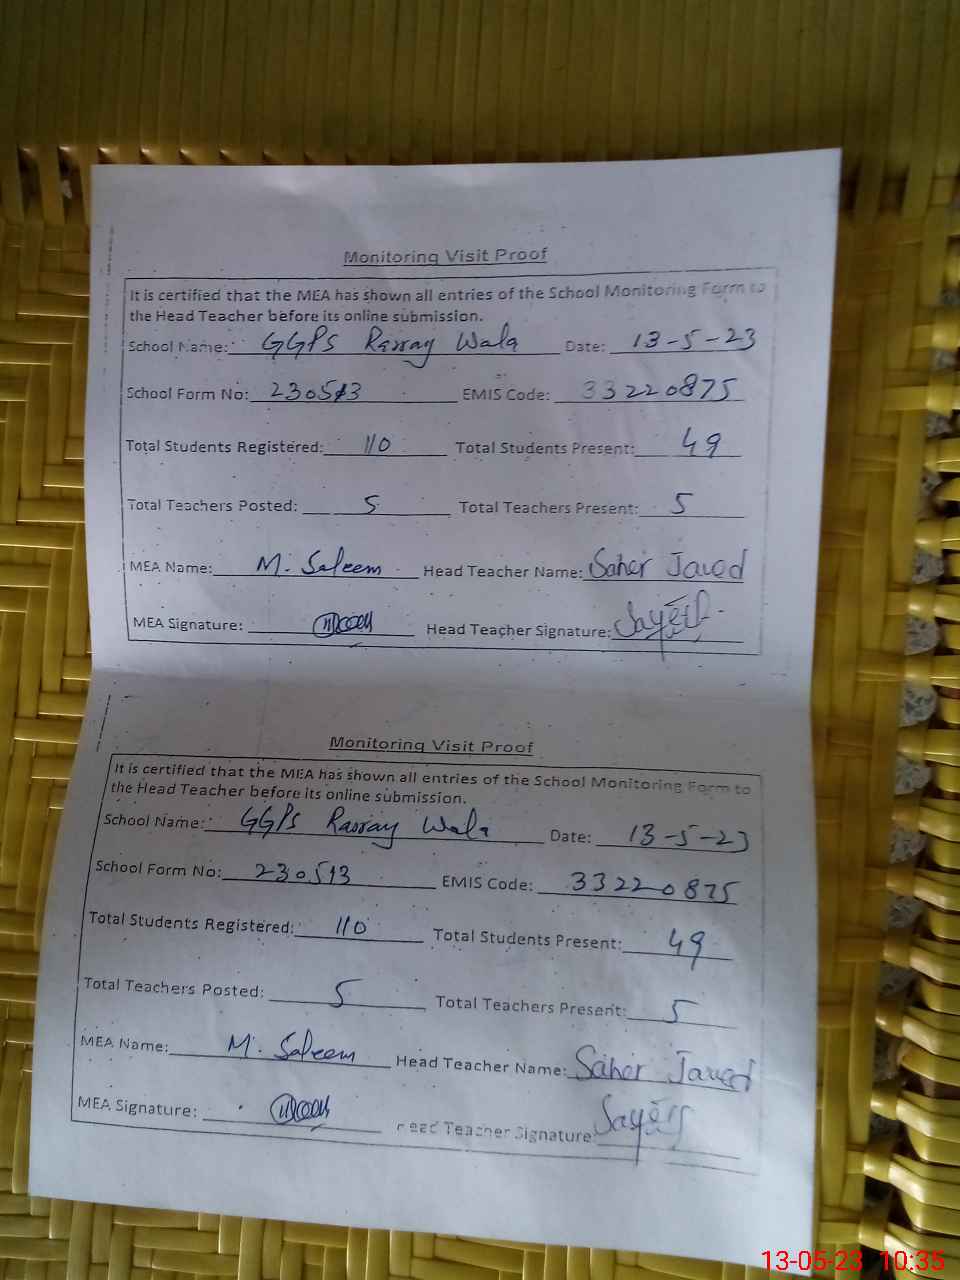 Monitoring Visit Proof
It is certified that the MEA has shown all entries of the School Monitoring Form to
the Head Teacher before its online submission.
School Name: GGPS Rawray Wala Date: 13-5-23
School Form No: 230513 EMIS Code: 33220875
Total Students Registered: 110 Total Students Present: 49
Total Teachers Posted: 5 Total Teachers Present: 5
MEA Name: M. Saleem Head Teacher Name: Saher Javed
MEA Signature: Head Teacher Signature:
Monitoring Visit Proof
It is certified that the MEA has shown all entries of the School Monitoring Form to
the Head Teacher before its online submission.
School Name: GGPS Rawray Wala Date: 13-5-23
School Form No: 230513 EMIS Code: 33220875
Total Students Registered: 110 Total Students Present: 49
Total Teachers Posted: 5 Total Teachers Present: 5
MEA Name: M. Saleem Head Teacher Name: Saher Javed
MEA Signature: Head Teacher Signature:
13-05-23 10:35